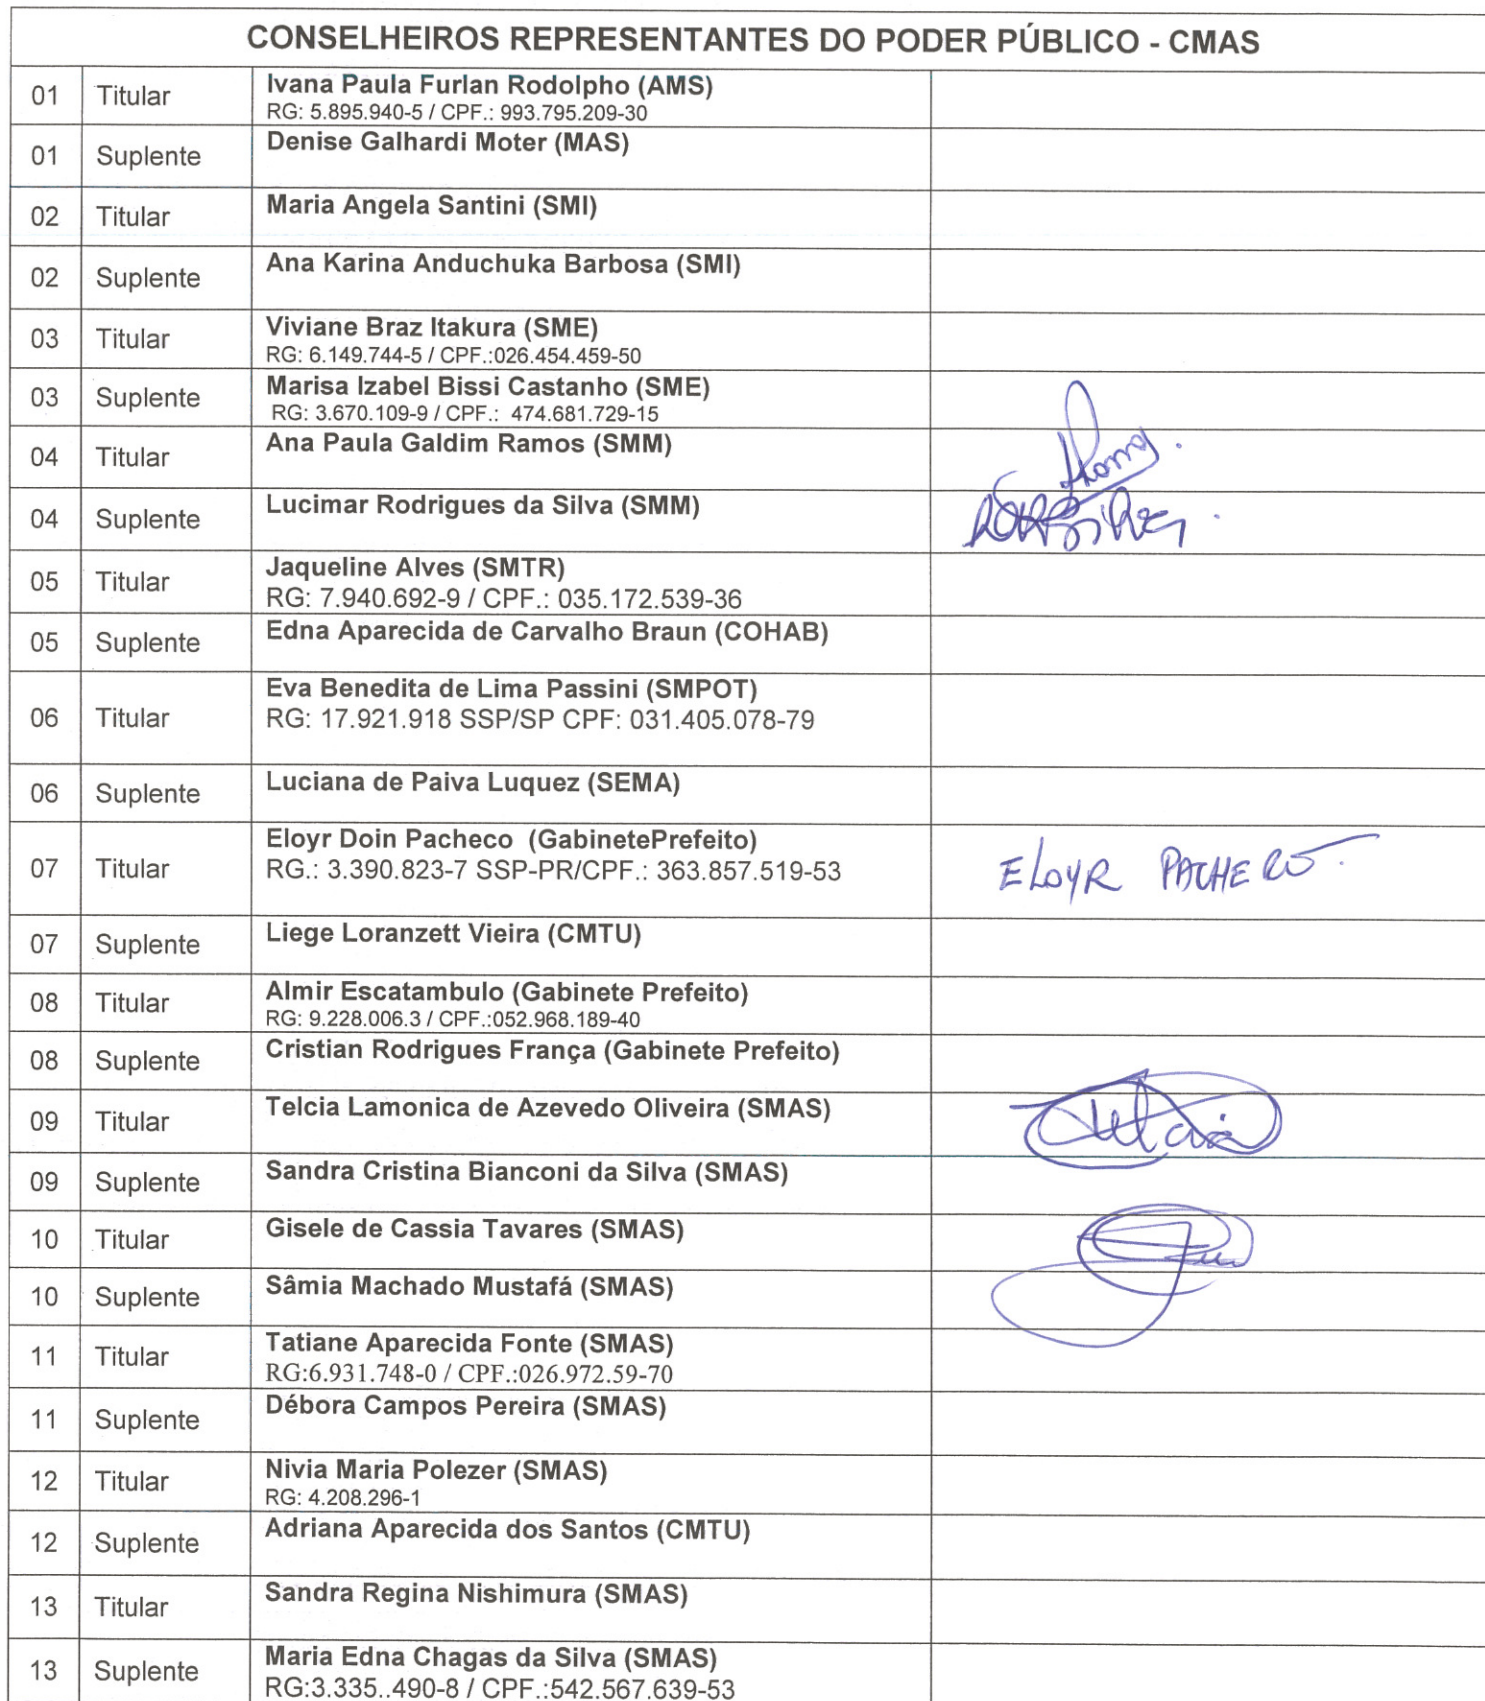 CONSELHEIROS REPRESENTANTES DO PODER PÚBLICO - CMAS
01 Titular Ivana Paula Furlan Rodolpho (AMS)
RG: 5.895.940-5 / CPF.: 993.795.209-30
01 Suplente Denise Galhardi Moter (MAS)
02 Titular Maria Angela Santini (SMI)
02 Suplente Ana Karina Anduchuka Barbosa (SMI)
03 Titular Viviane Braz Itakura (SME)
RG: 6.149.744-5 / CPF.:026.454.459-50
03 Suplente Marisa Izabel Bissi Castanho (SME)
RG: 3.670.109-9 / CPF.: 474.681.729-15
04 Titular Ana Paula Galdim Ramos (SMM)
04 Suplente Lucimar Rodrigues da Silva (SMM)
05 Titular Jaqueline Alves (SMTR)
RG: 7.940.692-9 / CPF.: 035.172.539-36
05 Suplente Edna Aparecida de Carvalho Braun (COHAB)
06 Titular Eva Benedita de Lima Passini (SMPOT)
RG: 17.921.918 SSP/SP CPF: 031.405.078-79
06 Suplente Luciana de Paiva Luquez (SEMA)
07 Titular Eloyr Doin Pacheco (GabinetePrefeito)
RG.: 3.390.823-7 SSP-PR/CPF.: 363.857.519-53 ELOYR PACHECO.
07 Suplente Liege Loranzett Vieira (CMTU)
08 Titular Almir Escatambulo (Gabinete Prefeito)
RG: 9.228.006.3 / CPF.:052.968.189-40
08 Suplente Cristian Rodrigues França (Gabinete Prefeito)
09 Titular Telcia Lamonica de Azevedo Oliveira (SMAS)
09 Suplente Sandra Cristina Bianconi da Silva (SMAS)
10 Titular Gisele de Cassia Tavares (SMAS)
10 Suplente Sâmia Machado Mustafá (SMAS)
11 Titular Tatiane Aparecida Fonte (SMAS)
RG:6.931.748-0 / CPF.:026.972.59-70
11 Suplente Débora Campos Pereira (SMAS)
12 Titular Nivia Maria Polezer (SMAS)
RG: 4.208.296-1
12 Suplente Adriana Aparecida dos Santos (CMTU)
13 Titular Sandra Regina Nishimura (SMAS)
13 Suplente Maria Edna Chagas da Silva (SMAS)
RG:3.335..490-8 / CPF.:542.567.639-53